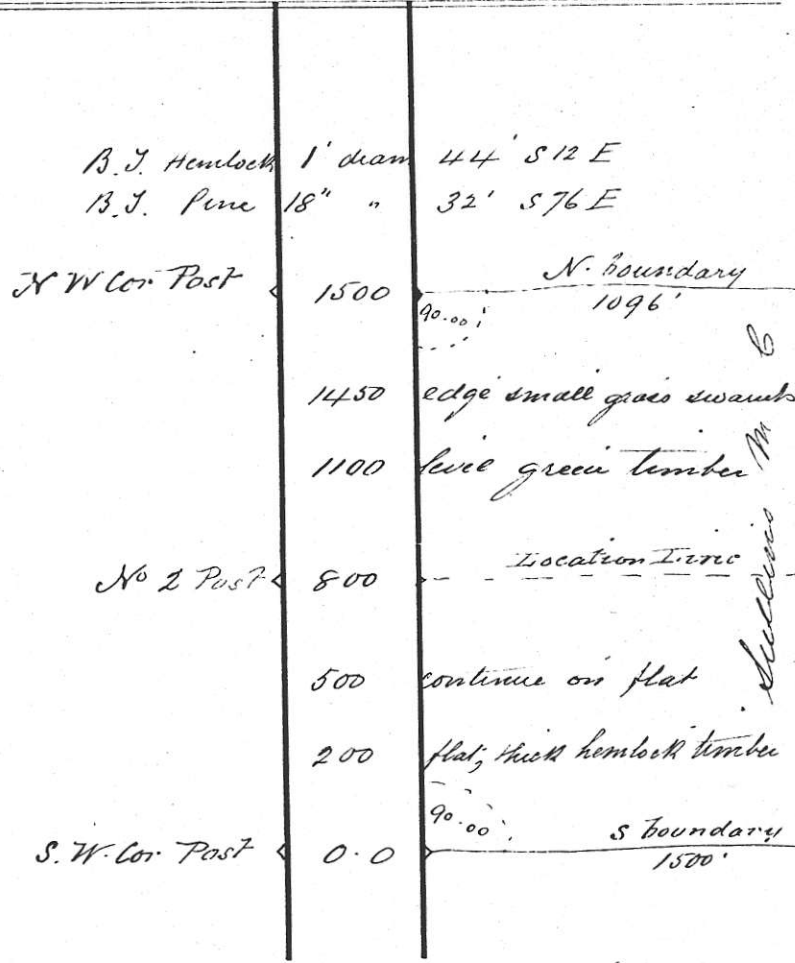 B.T. Hemlock 1' diam 44' S 12 E
B.T. Pine 18" " 32' S 76 E
N W Cor Post 1500 N. boundary
90.00 1096'
1450 edge small grass swamp
1100 level green timber
No 2 Post 800 Location Line
500 continue on flat
200 flat, thick hemlock timber
90.00
S. W. Cor Post 0.0 S boundary
1500'
M C